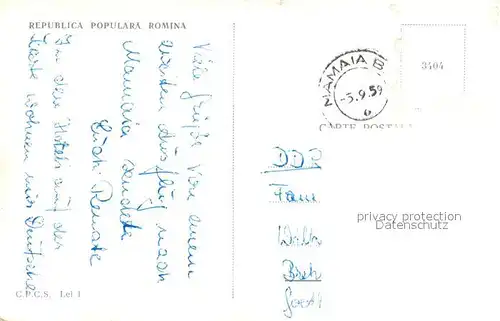 REPUBLICA POPULARĂ ROMINA
Viele Grüße von einem
zweiten Ausflug nach
Mamaia sendet
Renate
In den Hotels auf der
Karte wohnen wir Deutsche
C.P.C.S. Lei 1
MAMAIA B
-5.9.59
6
3404
CARTE POSTALA
DDR
Fam.
privacy protection
Datenschutz